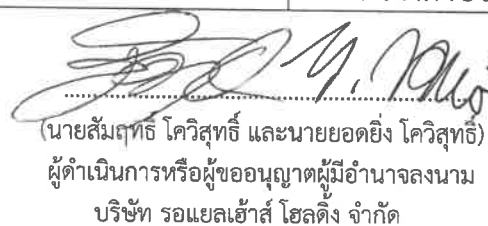 (นายสัมฤทธิ์ โควิสุทธิ์ และนายยอดยิ่ง โควิสุทธิ์)
ผู้ดำเนินการหรือผู้ขออนุญาตผู้มีอำนาจลงนาม
บริษัท รอแยลเฮ้าส์ โฮลดิ้ง จำกัด